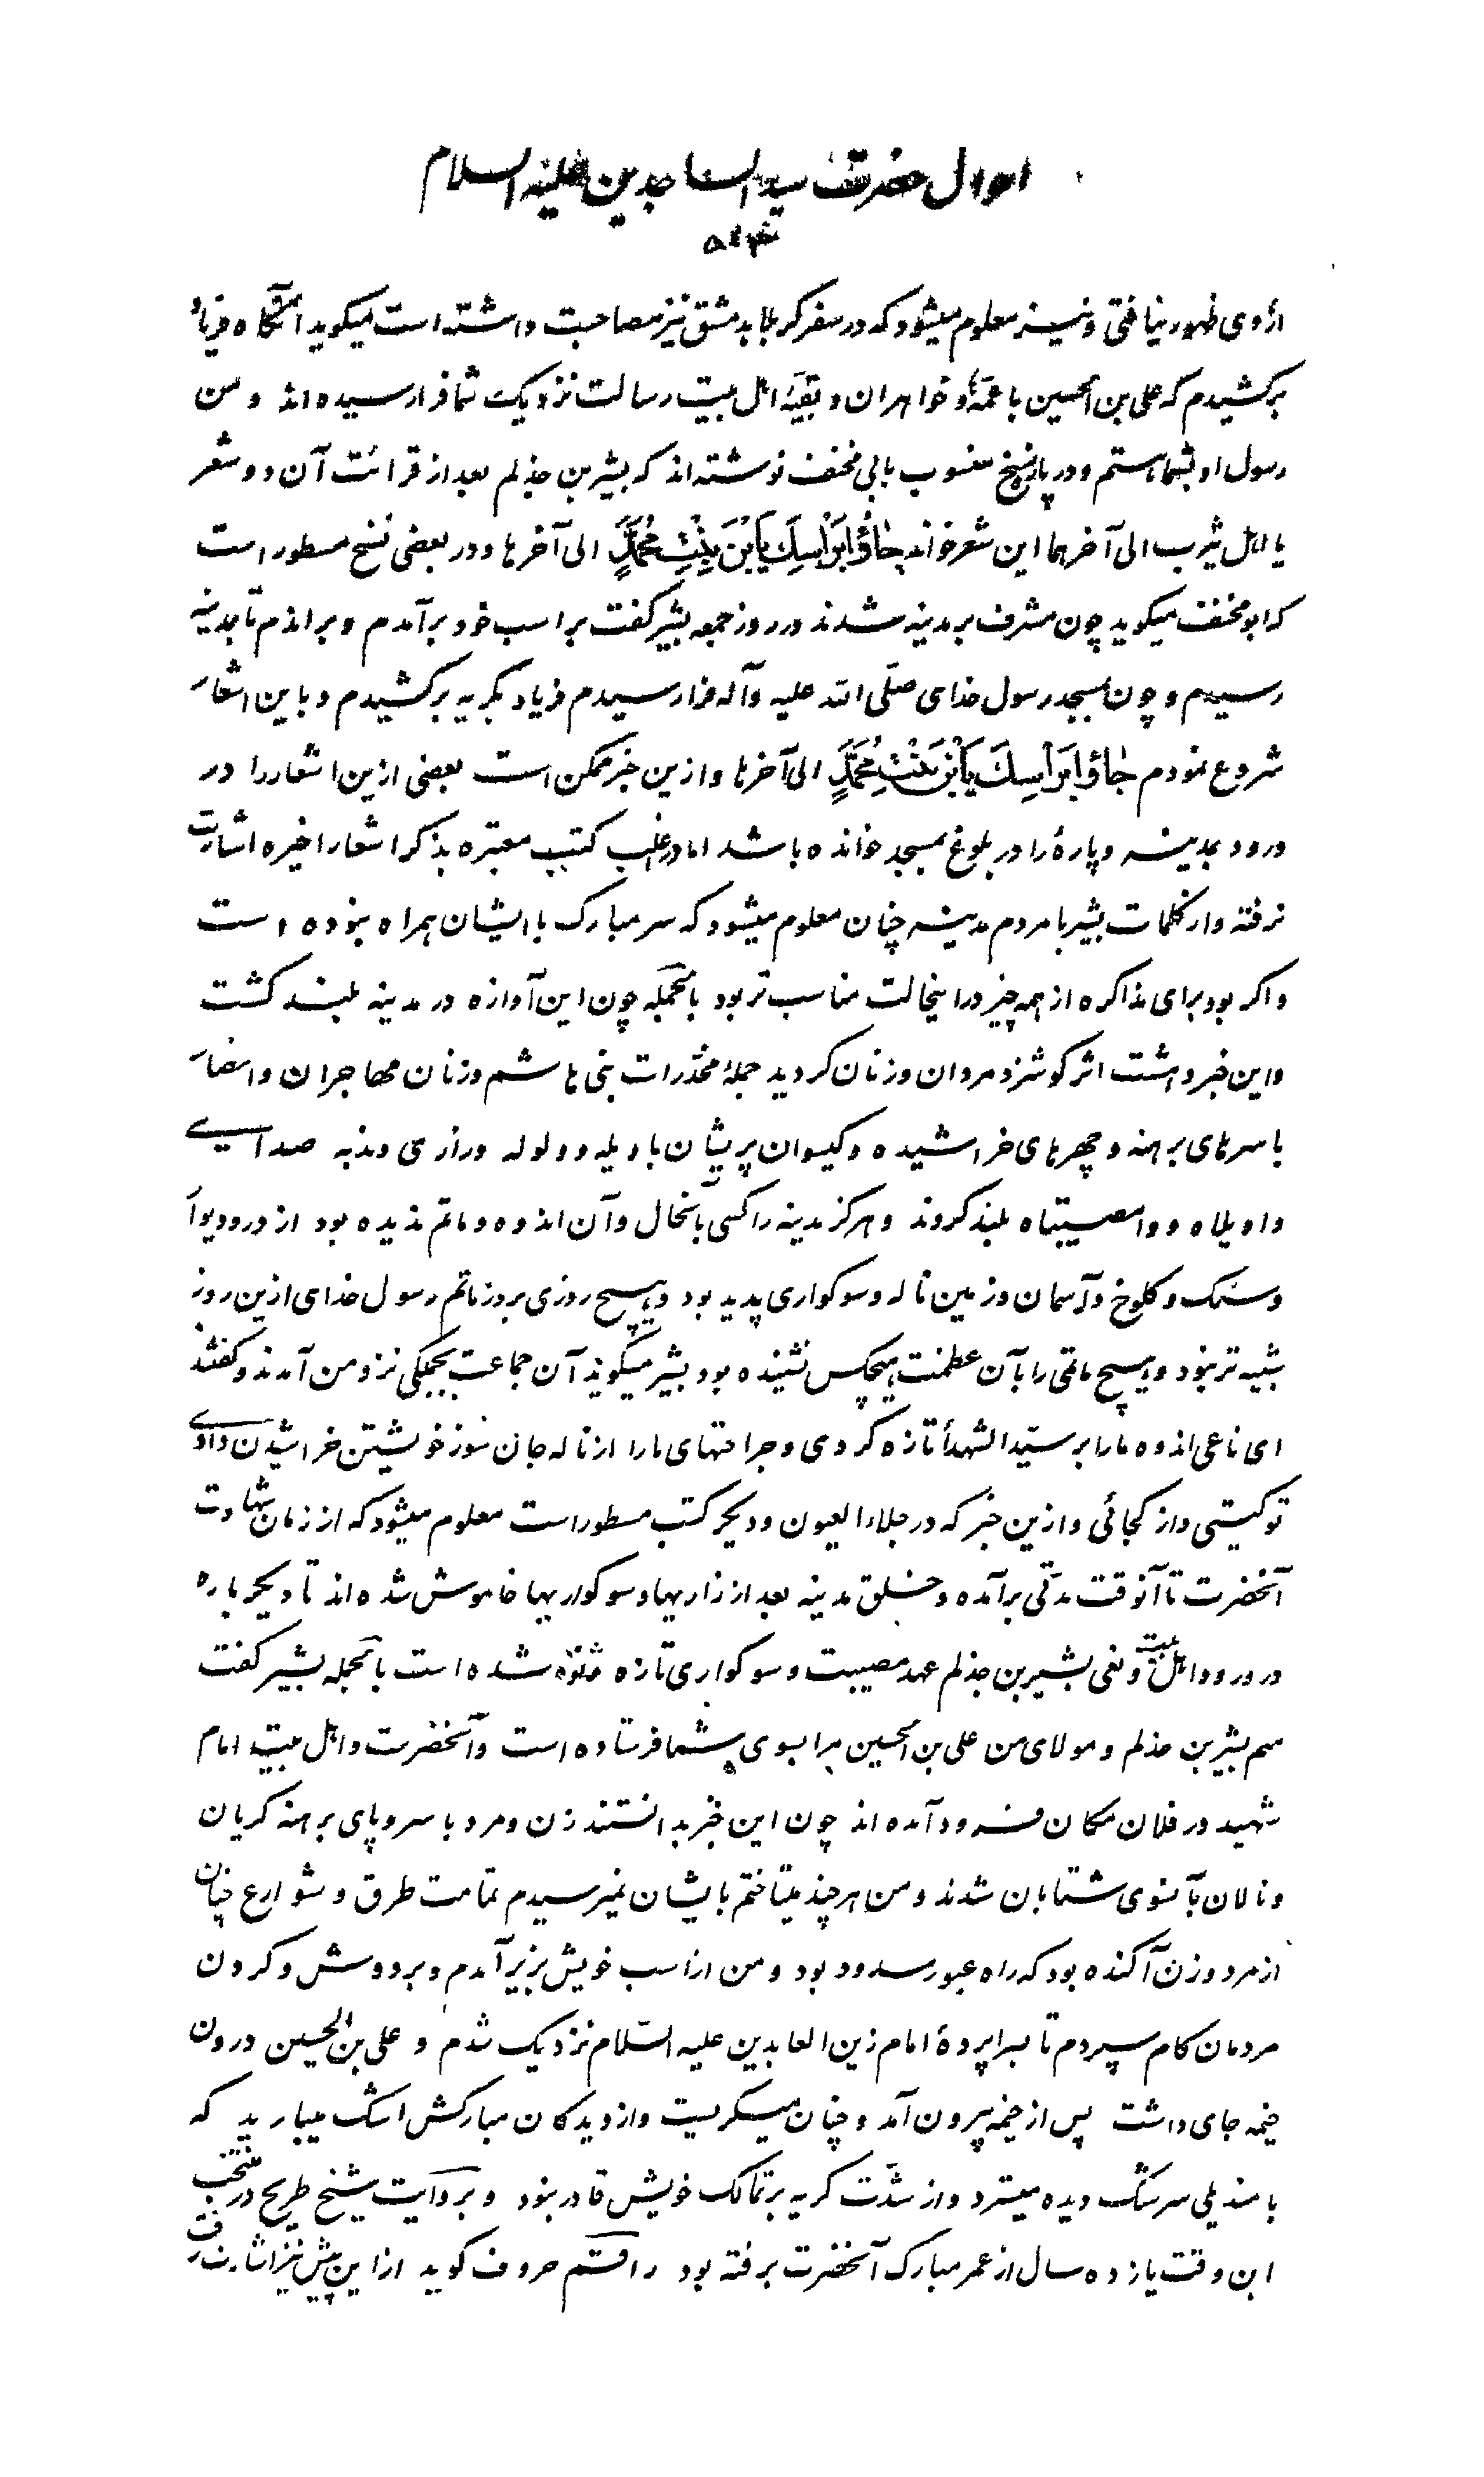 احوال حضرت سید الساجدین علیه السلام
از وی ظهور نیافتی و نیز معلوم میشود که در سفر کربلا بدمشق نیز مصاحبت داشته است میگوید آنگاه فریاد
برکشیدم که علی بن الحسین با عمه‌ها و خواهران و بقیه اهل بیت رسالت نزدیک شما فرا رسیده‌اند و من
رسول او بشما هستم و در پاره نسخ منسوب بابی مخنف نوشته‌اند که بشیر بن جذلم بعد از قرائت آن دو شعر
یا اهل یثرب الی آخرهما این شعر خواند جَاؤُا بِرَأْسِكَ يَابْنَ بِنْتِ مُحَمَّدٍ الی آخرها و در بعضی نسخ مسطور است
که ابو مخنف میگوید چون مشرف بر مدینه شدند در روز جمعه بشیر گفت بر اسب خود برآمدم و براندم تا بمدینه
رسیدم و چون بمسجد رسول خدای صلّی الله علیه وآله فرا رسیدم فریاد بگریه برکشیدم و باین اشعار
شروع نمودم جَاؤُا بِرَأْسِكَ يَابْنَ بِنْتِ مُحَمَّدٍ الی آخرها و ازین خبر ممکن است بعضی ازین اشعار را در
ورود بمدینه و پارهٔ را در بلوغ بمسجد خوانده باشد اما در اغلب کتب معتبره بذکر اشعار اخیره اشارت
نرفته و از کلمات بشیر با مردم مدینه چنان معلوم میشود که سر مبارک با ایشان همراه نبوده است
و اگر بود برای مذاکره از همه چیز در اینحالت مناسب تر بود بالجمله چون این آوازه در مدینه بلند گشت
و این خبر وحشت اثر گوشزد مردان و زنان گردید جملهٔ مخدّرات بنی هاشم و زنان مهاجران و انصار
با سرهای برهنه و چهرهای خراشیده و گیسوان پریشان با ویله و ولوله و زاری و ندبه صدای
واویلاه و وامصیبتاه بلند کردند و هرگز مدینه را کسی بآنحال و آن اندوه و ماتم ندیده بود از در و دیوار
و سنگ و کلوخ و آسمان و زمین ناله و سوگواری پدید بود و هیچ روزی بروز ماتم رسول خدای ازین روز
شبیه تر نبود و هیچ ماتمی را بآن عظمت هیچکس نشنیده بود بشیر میگوید آن جماعت بجملگی نزد من آمدند و گفتند
ای ناعی اندوه ما را بر سیّد الشهدا تازه کردی و جراحتهای ما را از ناله جان سوز خویشتن خراشیدن دادی
تو کیستی و از کجائی و ازین خبر که در جلاء العیون و دیگر کتب مسطور است معلوم میشود که از زمان شهادت
آنحضرت تا آنوقت مدتی برآمده و خلق مدینه بعد از زاریها و سوگواریها خاموش شده‌اند تا دیگر باره
در ورود اهل بیت و نعی بشیر بن جذلم عهد مصیبت و سوگواری تازه شده است بالجمله بشیر گفت
منم بشیر بن جذلم و مولای من علی بن الحسین مرا بسوی شما فرستاده است و آنحضرت و اهل بیت امام
شهید در فلان مکان فرود آمده‌اند چون این خبر بدانستند زن و مرد با سر و پای برهنه گریان
و نالان بآنسوی شتابان شدند و من هر چند میتاختم بایشان نمیرسیدم تمامت طرق و شوارع چنان
از مرد و زن آکنده بود که راه عبور مسدود بود و من از اسب خویش بزیر آمدم و بر دوش و گردن
مردمان گام سپردم تا بسراپردهٔ امام زین العابدین علیه السّلام نزدیک شدم و علی بن الحسین درون
خیمه جای داشت پس از خیمه بیرون آمد و چنان میگریست و از دیدگان مبارکش اشک میبارید که
با مندیلی سرشک دیده میسترد و از شدّت گریه بر تمالک خویش قادر نبود و بروایت شیخ طریح در منتخب
این وقت یازده سال از عمر مبارک آنحضرت برفته بود راقم حروف گوید ازاین پیش نیز اشارت رفت